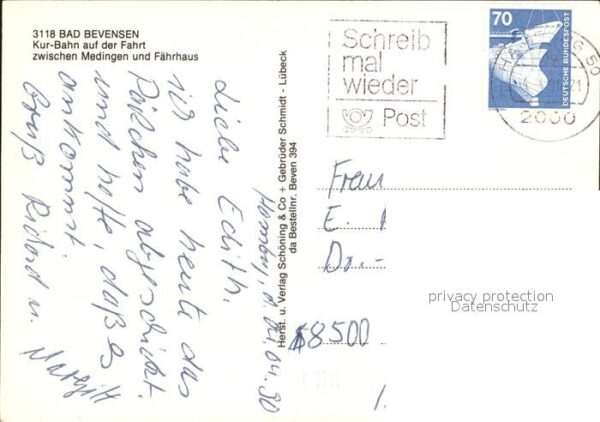 3118 BAD BEVENSEN
Kur-Bahn auf der Fahrt
zwischen Medingen und Fährhaus
Hamburg, d. 04.04.90
Liebe Edith,
ich habe heute das
Päckchen abgeschickt
und hoffe, daß es
ankommt
Gruß Richard u.
Margitt
Herst. u. Verlag Schöning & Co + Gebrüder Schmidt - Lübeck
da Bestellnr. Beven 394
Schreib
mal
wieder
Post
70
DEUTSCHE BUNDESPOST
HAMBURG
2000
Frau
E.
Dr.-
8500
privacy protection
Datenschutz